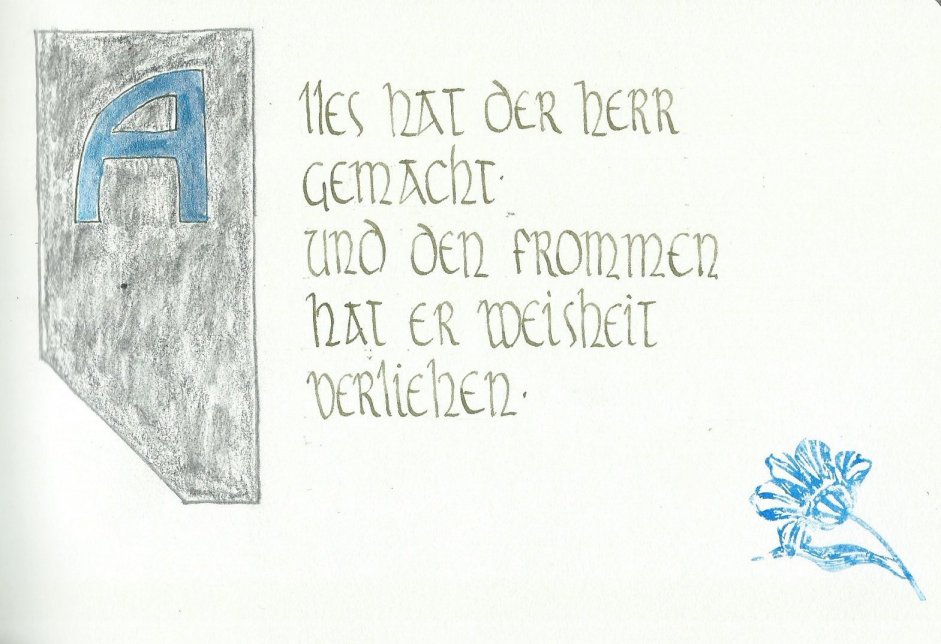 Alles hat der Herr
gemacht.
und den frommen
hat er weisheit
verliehen.